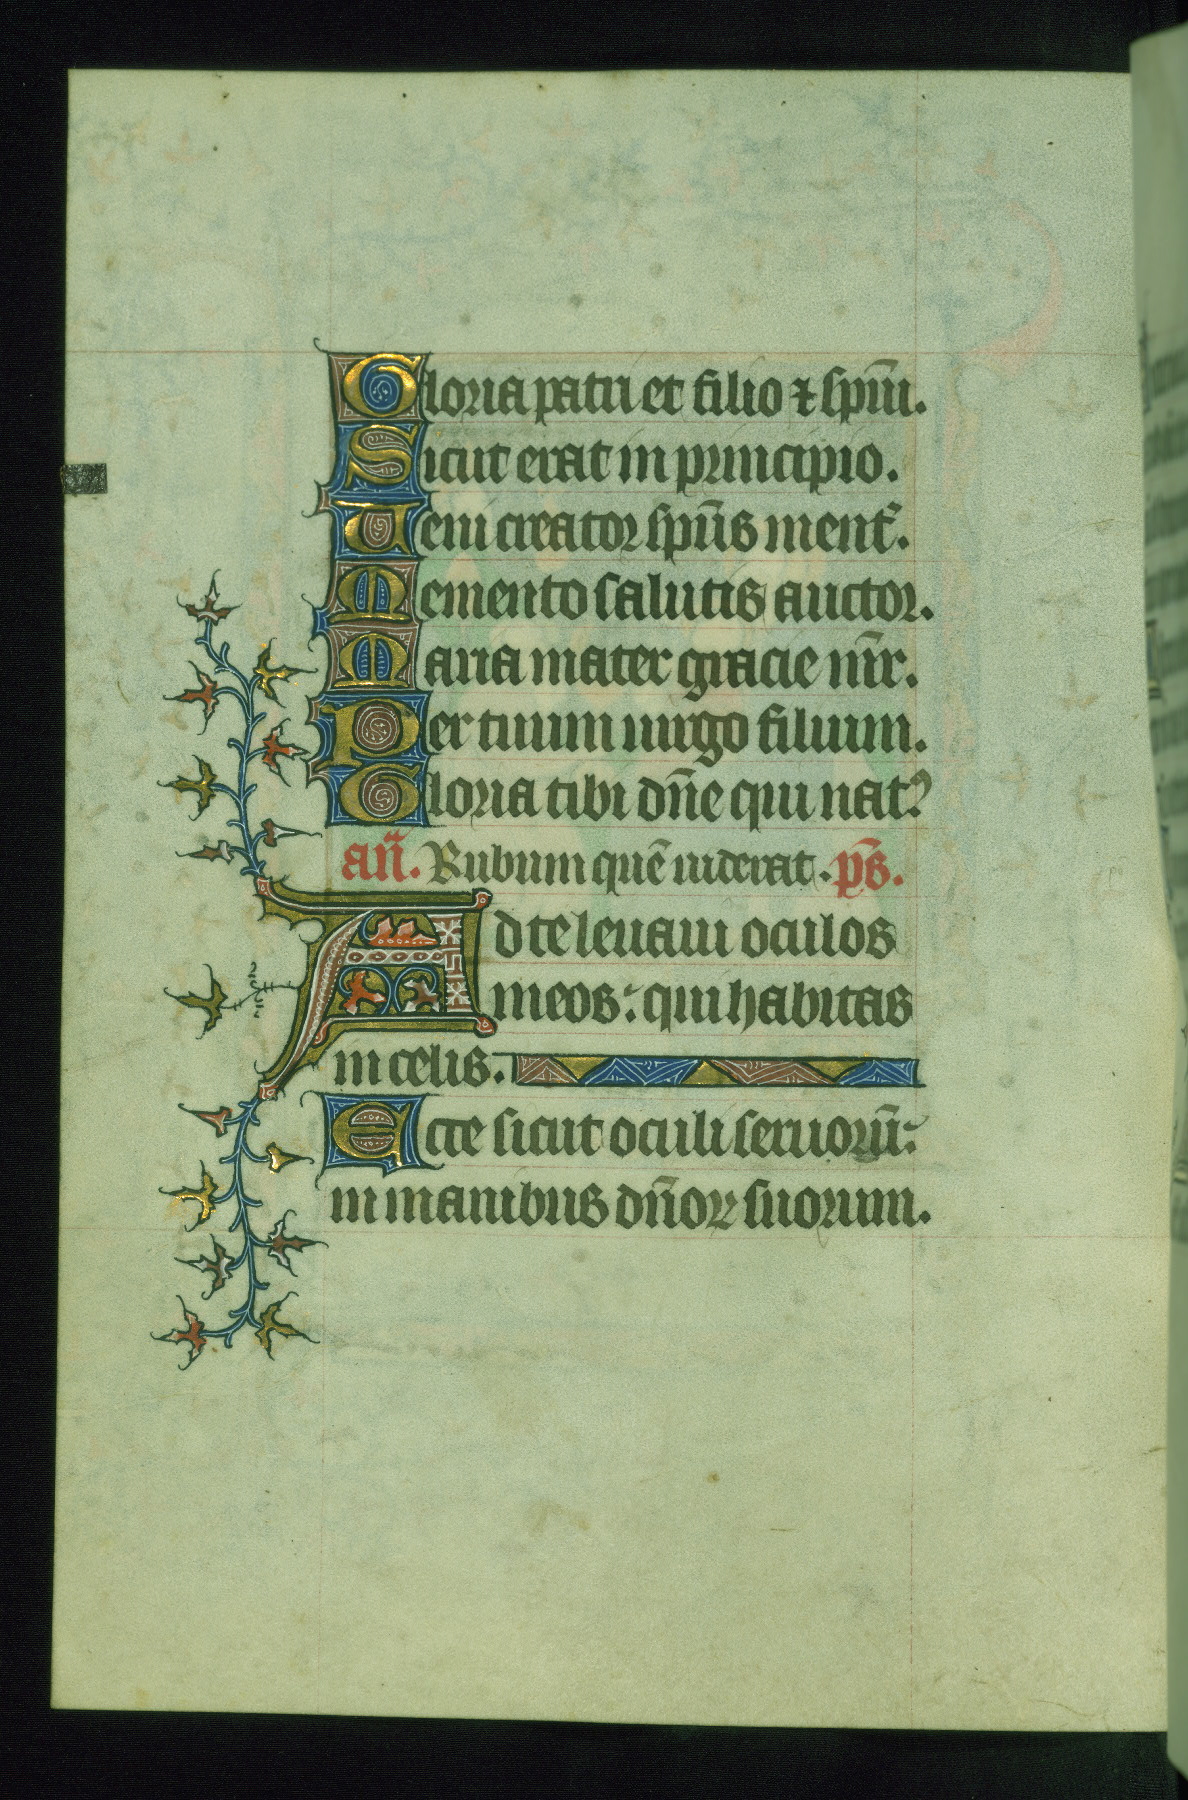 Gloria patri et filio ⁊ sp̄ui.
Sicut erat in principio.
Ueni creator sp̄us ment̾.
Memento salutis auctor.
Maria mater gracie m̄ir.
Per tuum uirgo filium.
Gloria tibi dn̄e qui natꝰ
an̄. Rubum quē uiderat. ps̄.
Ad te leuaui oculos
meos: qui habitas
in celis.
Ecce sicut oculi seruorū:
in manibus dn̄oꝝ suorum.